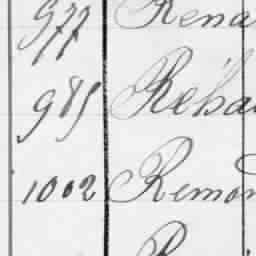 977 Rena
985 Réha
1002 Remon